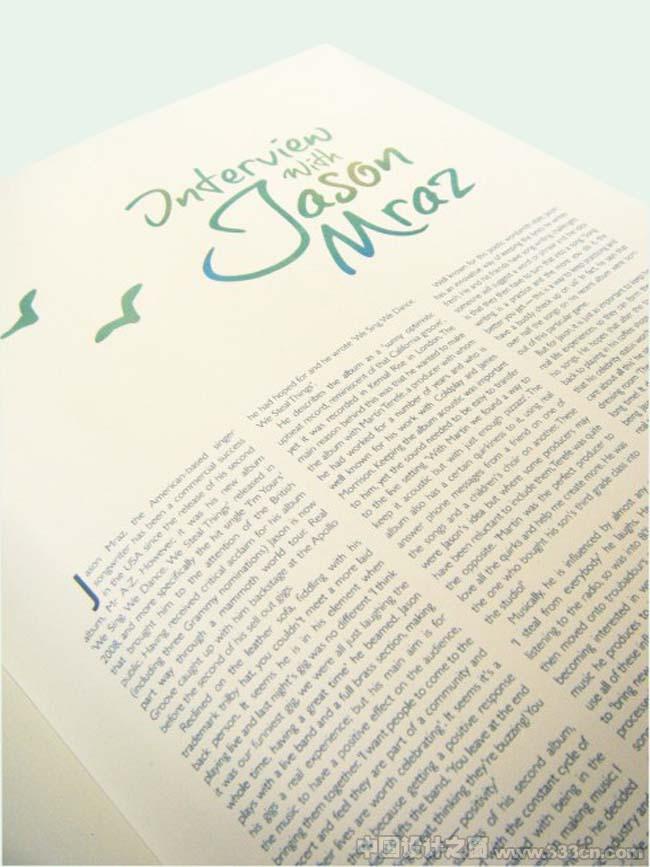 Interview
with
Jason
Mraz
Jason Mraz, the American-based singer
songwriter has been a commercial success
in the USA since the release of his second
album, Mr. A.Z. However, it was his new album
'We Sing. We Dance. We Steal Things' released in
2008 and more specifically the hit single 'I'm Yours'
that brought him to the attention of the British
public. Having received critical acclaim for his album
(including three Grammy nominations) Jason is now
part way through a mammoth world tour. Real
Groove caught up with him backstage at the Apollo
before the second of his sell out gigs.
Reclined on the leather sofa, fiddling with his
trademark trilby hat, you couldn't meet a more laid
back person. It seems he is in his element when
playing live and last night's gig was no different. 'I think
it was our funniest gig, we were all just laughing the
whole time, having a great time' he beamed. Jason
plays with a live band and a full brass section, making
his gigs a real experience; but his main aim is for
the music to have a positive effect on the audience,
bringing them together. 'I want people to come to the
concert and feel they are part of a community and
their lives are worth celebrating'. It seems it's a
because getting a positive response
the band. 'You leave at the end
thinking, they're buzzing! You
positivity'
of his second album,
the constant cycle of
with being in the
making music',
decided
he had hoped for and he wrote 'We Sing. We Dance.
We Steal Things'.
He describes the album as a 'sunny optimistic
upbeat record, reminiscent of that California groove',
yet it was recorded in Kensal Rise in London. The
main reason behind this was that he wanted to make
the album with Martin Terefe, a producer with whom
he had worked for a number of years and who is
well known for his work with Coldplay and James
Morrison. Keeping the album acoustic was important
to him yet the sound needed to be easy to transfer
to the live setting. 'With Martin we found a way to
keep it acoustic but with just enough pizzazz'. The
album also has a certain quirkiness to it, using real
answer phone messages from a friend on one of
the songs and a children's choir on another. These
were Jason's idea but where some producers may
have been reluctant to include them, Terefe was quite
the opposite. 'Martin was the perfect producer to
love all the quirks and help me create more. He was
the one who bought his son's third grade class into
the studio!'
Musically, he is influenced by almost any
'I steal from everybody' he laughs. He
listening to the radio, so was into
then moved onto troubadour
becoming interested in
music he produces to
use all of these
to 'bring new
Well known for his poetic wordsmith style, Jason
has an innovative way of keeping the lyrics he writes
fresh. He and his friends have song writing challenges
someone will suggest a word or phrase and the idea
is that they then have to turn that into a song. 'Song
writing is a practice and the more you do it, the
better you get, so this is a way to keep practising and
have a buddy check up on us'. In fact, he says that
over half the songs on his latest album were born
out of this particular game.
But for Jason, it is just as important to keep
real life experience, so they may form the
his songs. He hopes that after the
back to playing in his coffee shop
that his celebrity status
care about all
dressing room. 'The
long time, it
being
中国设计之窗
www.333cn.com